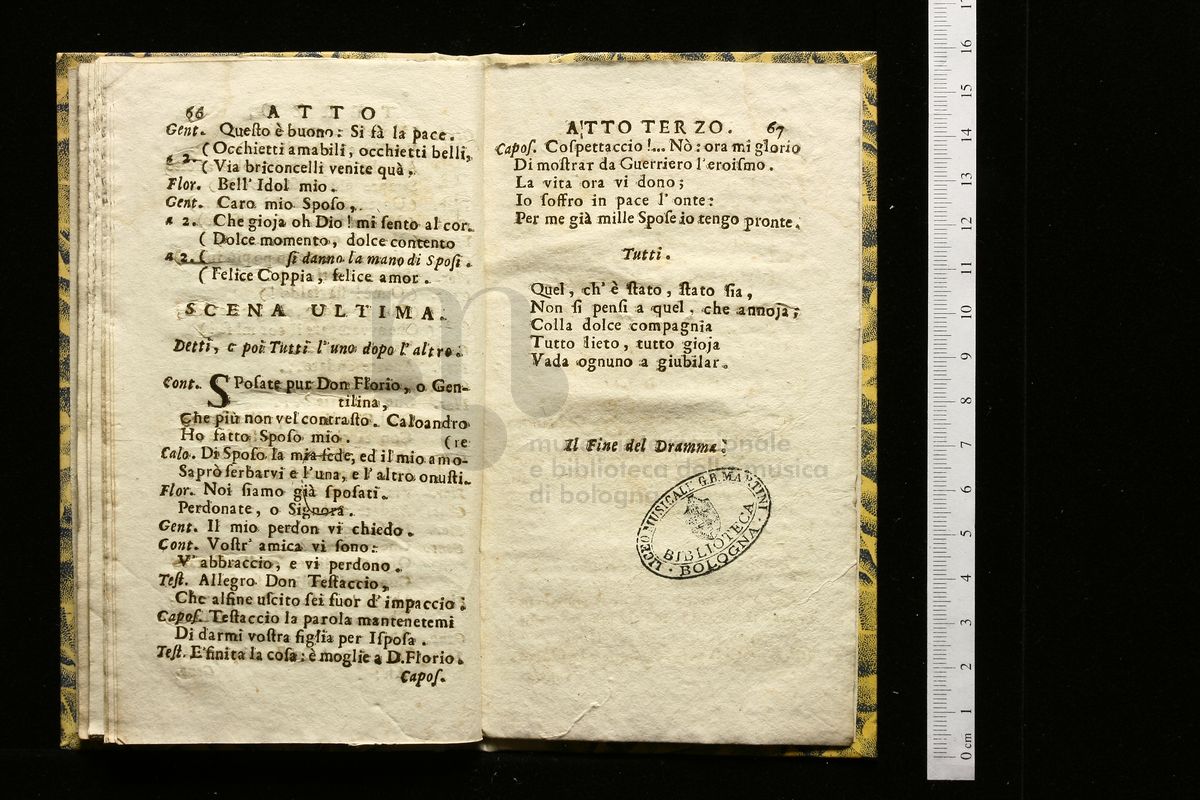 66 ATTO
Gent. Queſto è buono: Si fà la pace.
(Occhietti amabili, occhietti belli,
a 2.
(Via briconcelli venite quà.
Flor. Bell' Idol mio.
Gent. Caro mio Spoſo,
a 2. Che gioja oh Dio! mi ſento al cor.
( Dolce momento, dolce contento
a 2. ( ſi danno la mano di Spoſi.
(Felice Coppia, felice amor.
SCENA ULTIMA.
Detti, e poi Tutti l'uno dopo l'altro.
Cont. SPoſate pur Don Florio, o Gen-
tilina,
Che più non vel contraſto. Caloandro
Ho fatto Spoſo mio. (re
Calo. Di Spoſo la mia fede, ed il mio amo-
Saprò ſerbarvi e l'una, e l'altro onuſti.
Flor. Noi ſiamo già ſpoſati.
Perdonate, o Signora.
Gent. Il mio perdon vi chiedo.
Cont. Voſtr' amica vi ſono:
V' abbraccio, e vi perdono.
Teſt. Allegro Don Teſtaccio,
Che alfine uſcito ſei fuor d' impaccio.
Capoſ. Teſtaccio la parola mantenetemi
Di darmi voſtra figlia per Iſpoſa.
Teſt. E' finita la coſa: è moglie a D. Florio.
Capoſ.
ATTO TERZO. 67
Capoſ. Coſpettaccio!... Nò: ora mi glorio
Di moſtrar da Guerriero l'eroiſmo.
La vita ora vi dono;
Io ſoffro in pace l' onte:
Per me già mille Spoſe io tengo pronte.
Tutti.
Quel, ch' è ſtato, ſtato ſia,
Non ſi penſi a quel, che annoja;
Colla dolce compagnia
Tutto lieto, tutto gioja
Vada ognuno a giubilar.
Il Fine del Dramma.
museo internazionale
e biblioteca della musica
di bologna
LICEO MUSICALE G.B. MARTINI
BIBLIOTECA
· BOLOGNA ·
17
16
15
14
13
12
11
10
9
8
7
6
5
4
3
2
1
0 cm